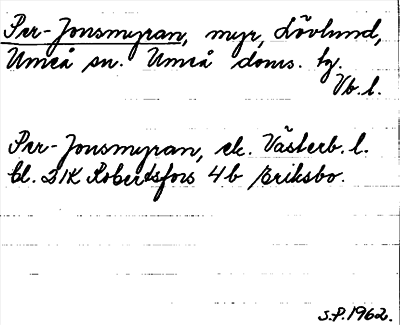 Per-Jonsmyran, myr, Lövlund,
Umeå sn. Umeå doms. hg.
Vb.l.
Per-Jonsmyran, ek. Västerb. l.
bl. 21K Robertsfors 4b Eriksbo.
S.P. 1962.